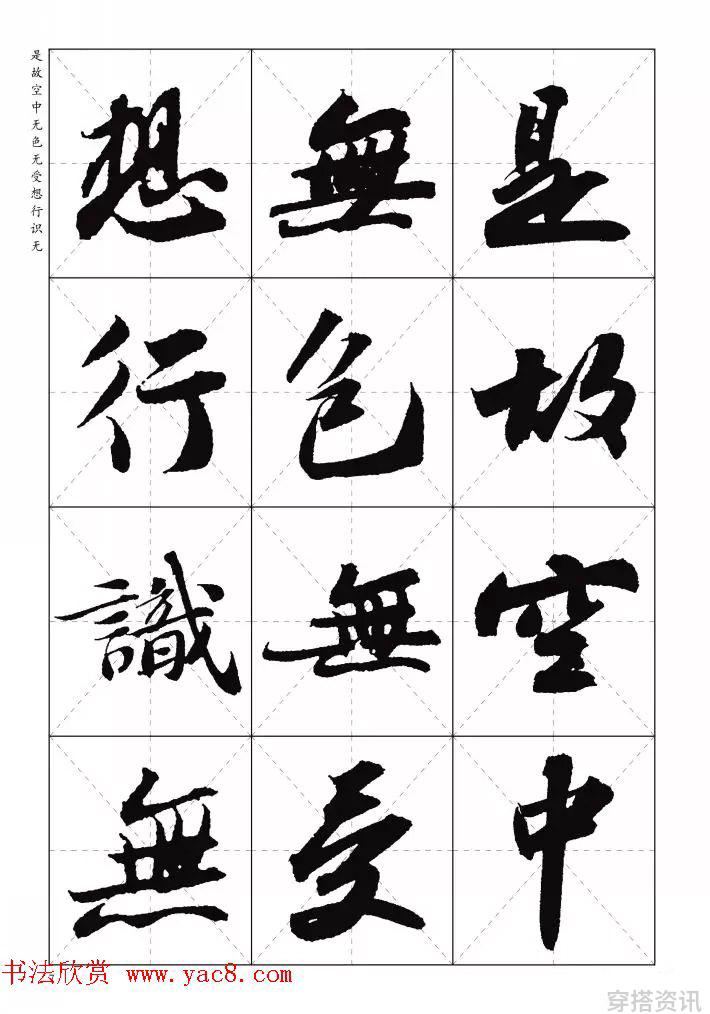 是故空中
無色無受
想行識無
是故空中无色无受想行识无
书法欣赏 www.yac8.com
穿搭资讯